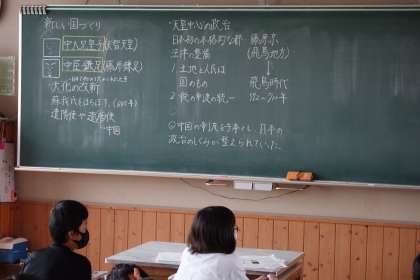 新しい国づくり
中大兄皇子(天智天皇)
中臣鎌足(藤原鎌足)
大化の改新
蘇我氏をほろぼす。(645年)
遣隋使や遣唐使
中国
天皇中心の政治
日本初の本格的な都 藤原京
法律の整備 (飛鳥地方)
1 土地と人民は
国のもの 飛鳥時代
2 税の制度の統一
◎中国の制度を手本にし、日本の
政治のしくみが整えられていった。